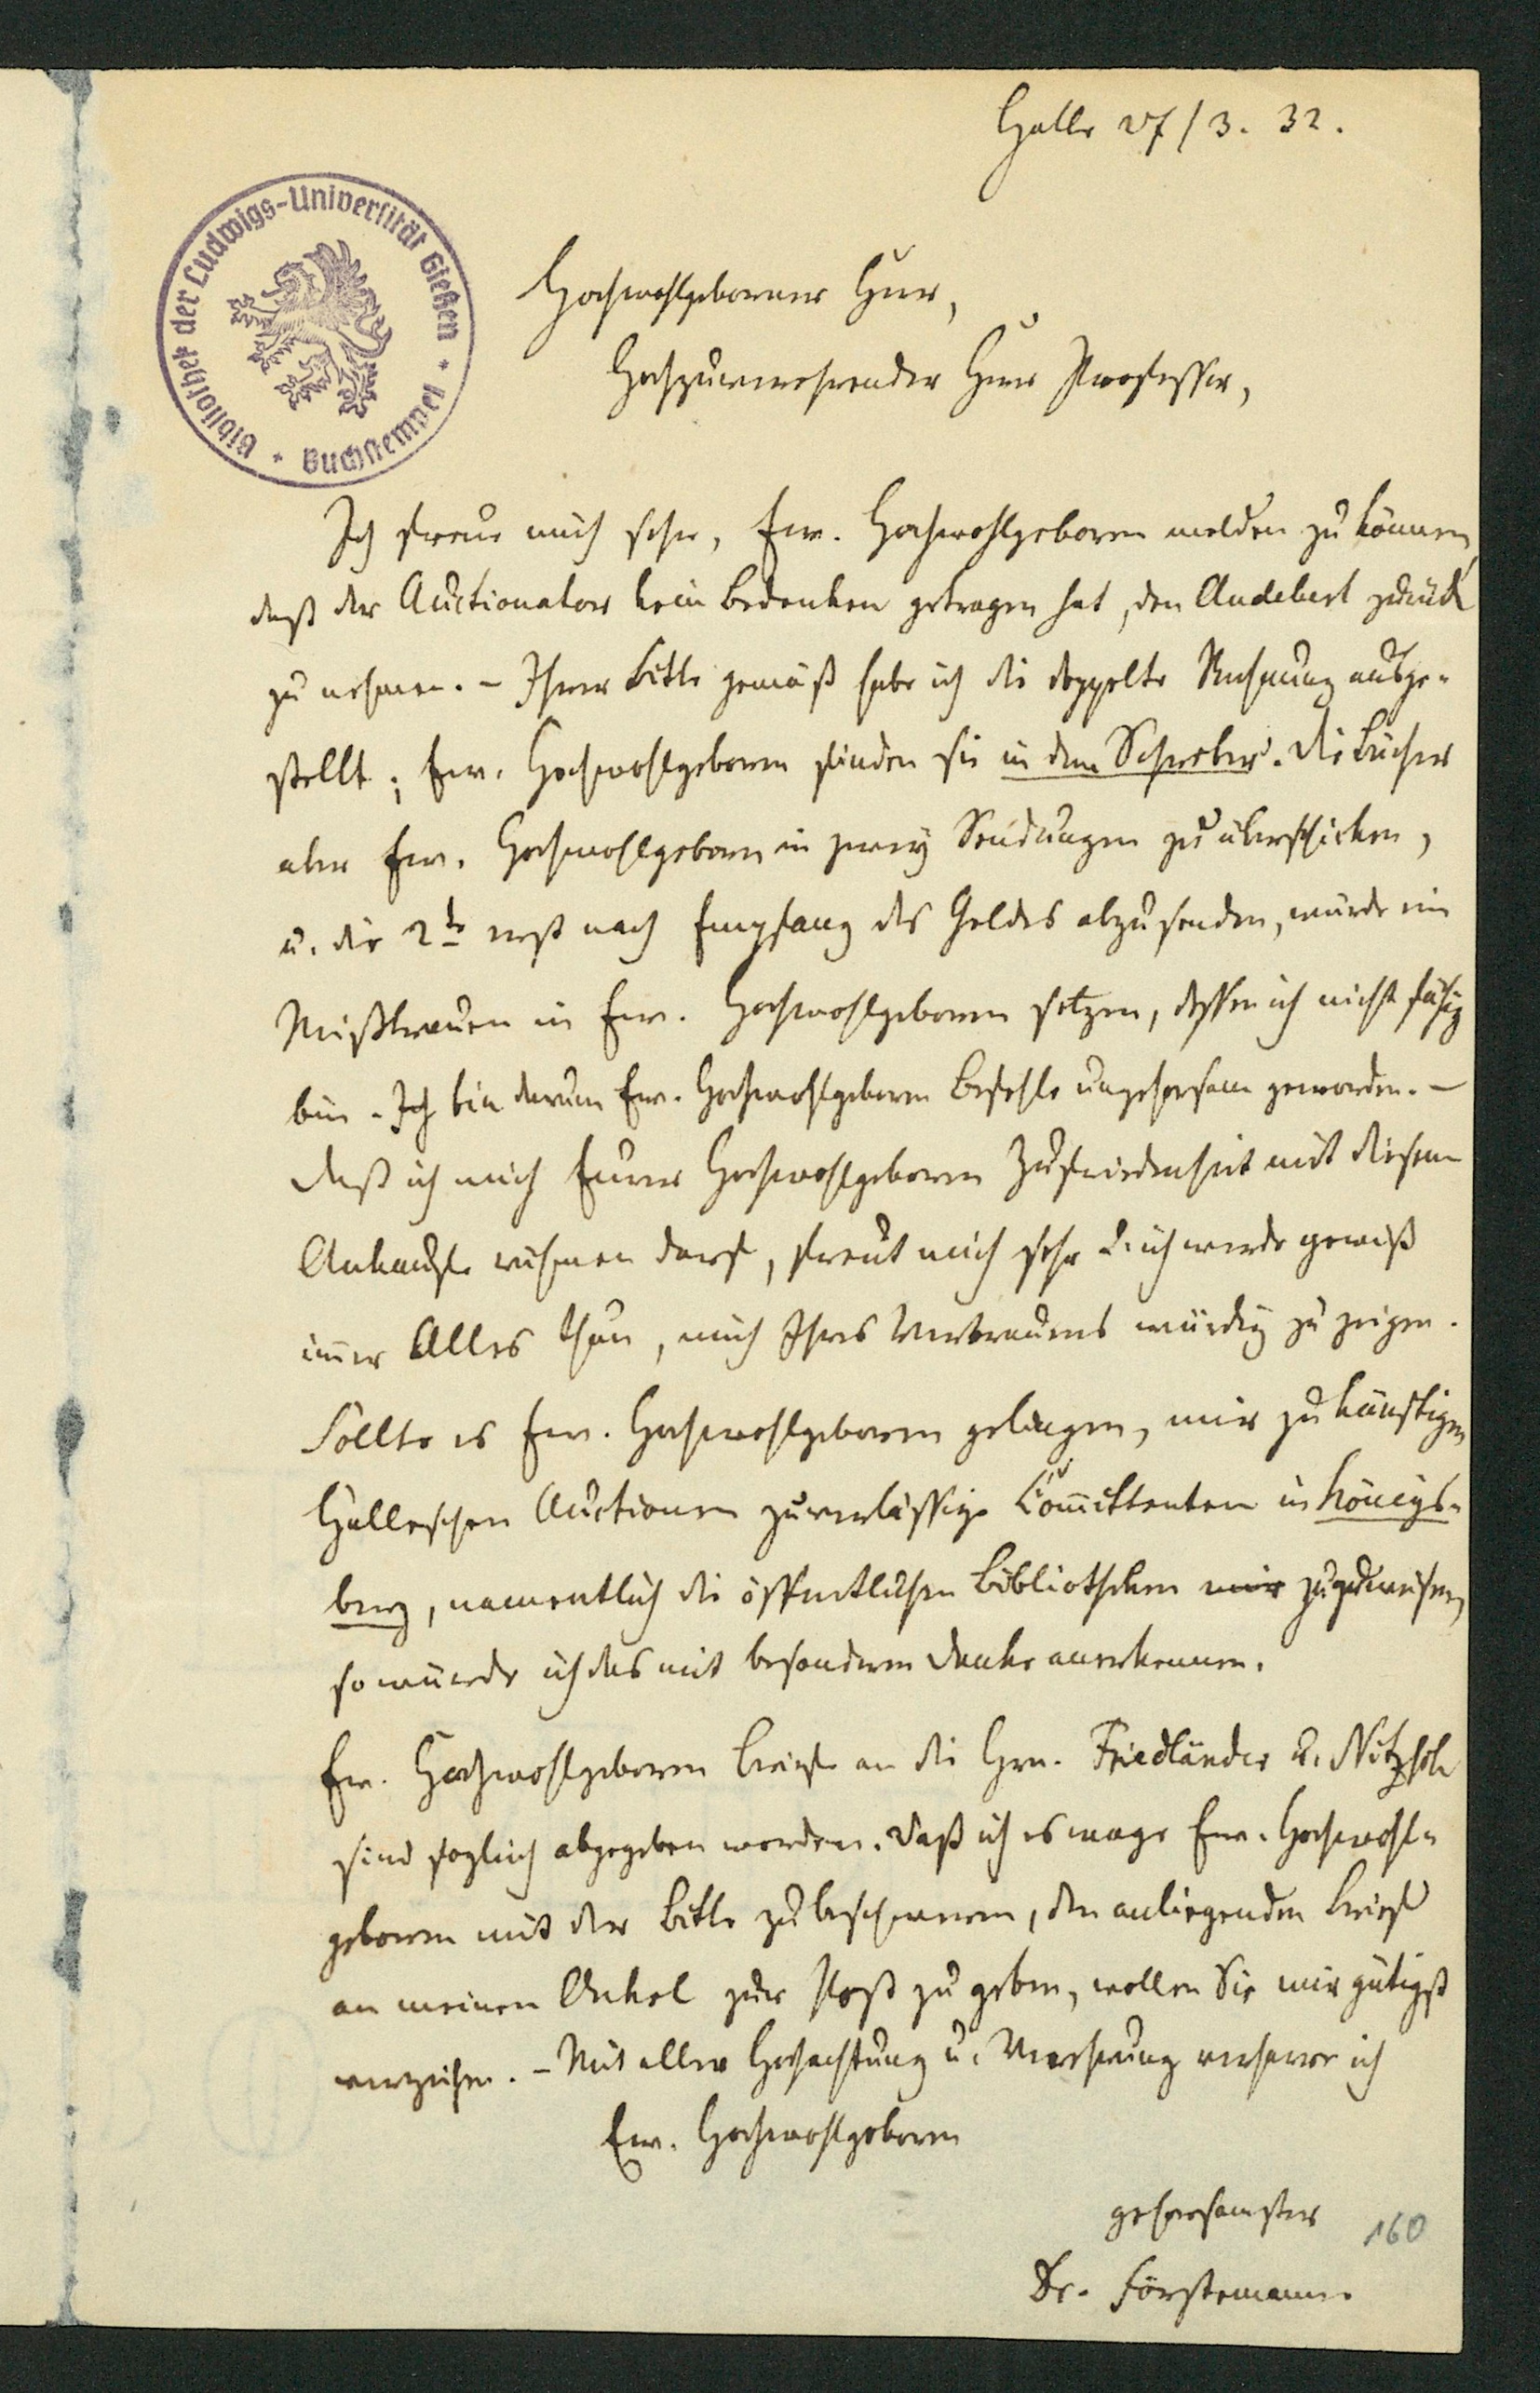 Halle 27/3. 32.
Bibliothek der Ludwigs-Universität Gießen * Buchstempel *
Hochwohlgeborner Herr,
Hochzuverehrender Herr Professor,
Ich freue mich sehr, Ew. Hochwohlgeboren melden zu können,
daß der Auctionator kein Bedenken getragen hat, den Audebert zurück
zu nehmen. – Ihrer Bitte gemäß habe ich die doppelte Rechnung ausge-
stellt; Ew. Hochwohlgeboren finden sie in dem Schreber. Die Bücher
aber Ew. Hochwohlgeboren in zwey Sendungen zu überschicken,
u. die 2te erst nach Empfang des Geldes abzusenden, würde ein
Mißtrauen in Ew. Hochwohlgeboren setzen, dessen ich nicht fähig
bin. Ich bin darum Ew. Hochwohlgeboren Befehle ungehorsam geworden. –
Daß ich mich Eurer Hochwohlgeboren Zufriedenheit mit diesem
Ankaufe rühmen darf, freut mich sehr u. ich werde gewiß
immer Alles thun, mich Ihres Vertrauens würdig zu zeigen.
Sollte es Ew. Hochwohlgeboren gelingen, mir zu künftigen
Halleschen Auctionen zuverlässige Committenten in Königs-
berg, namentlich die öffentlichen Bibliotheken mir zuzuweisen,
so würde ich das mit besonderm Danke anerkennen.
Ew. Hochwohlgeboren Briefe an die Hrn. Friedländer u. Nitzsch
sind sogleich abgegeben worden. Daß ich es wage Ew. Hochwohl-
geboren mit der Bitte zu beschweren, den anliegenden Brief
an meinen Onkel zur Post zu geben, wollen Sie mir gütigst
verzeihen. – Mit aller Hochachtung u. Verehrung verharre ich
Ew. Hochwohlgeboren
gehorsamster
Dr. Förstemann.
160